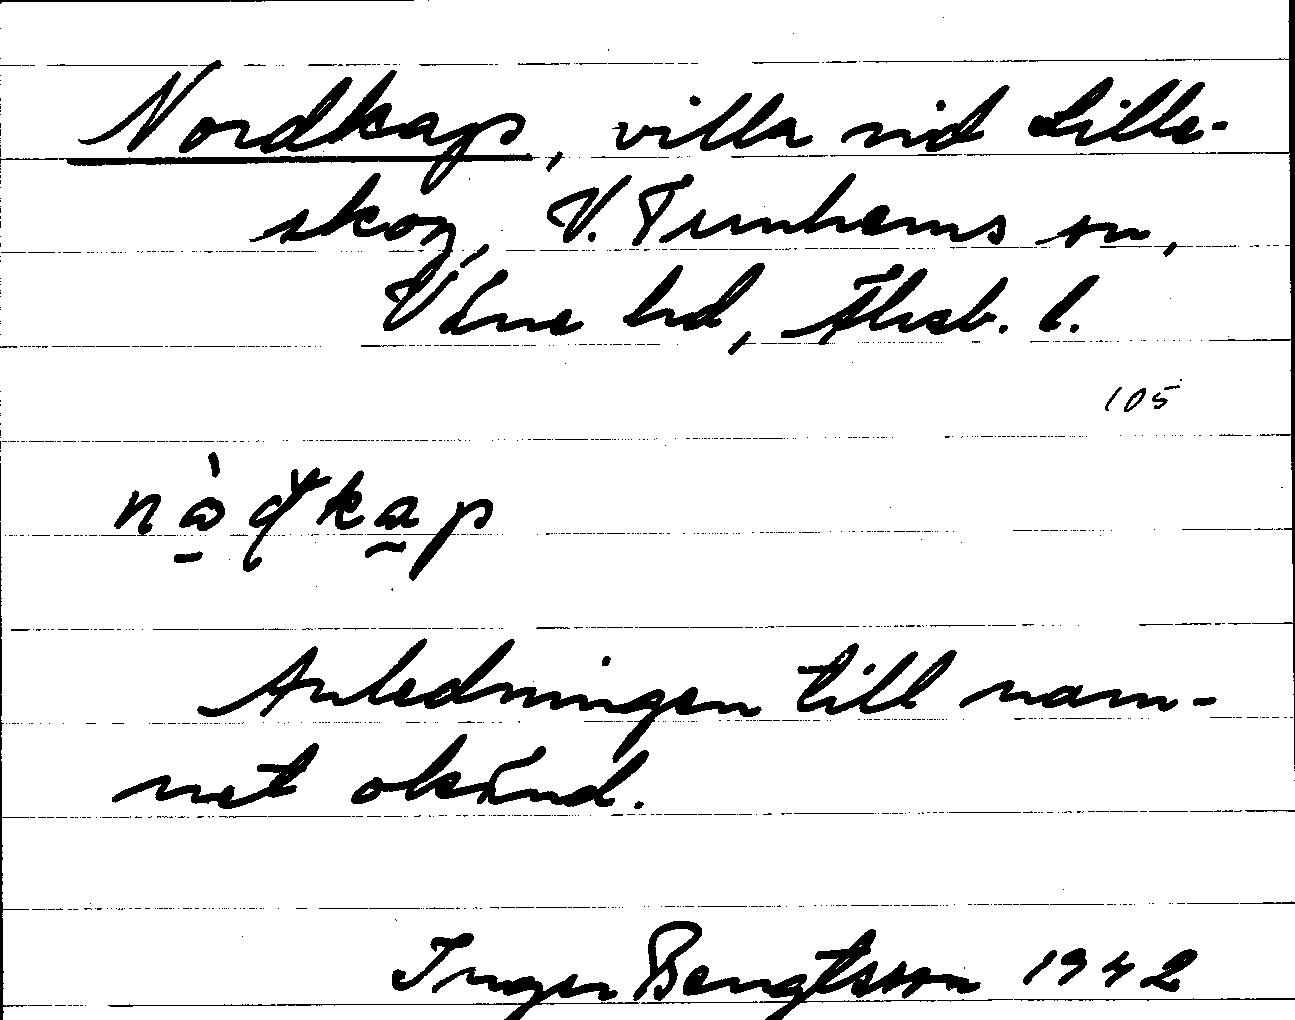 Nordkap, villa vid Lille-
skog, V. Tunhems sn,
Väne hd, Älvsb. l.
105
Anledningen till nam-
net okänd.
Inger Bengtsson 1942